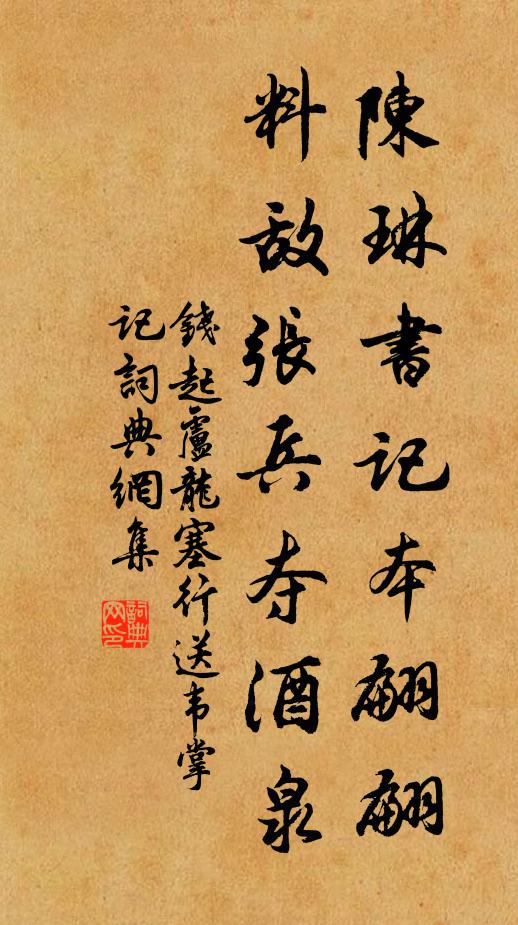 陳琳書記本翩翩
料敵張兵夺酒泉
錢起盧龍塞行送韦掌
記詞典網集
詞典网印